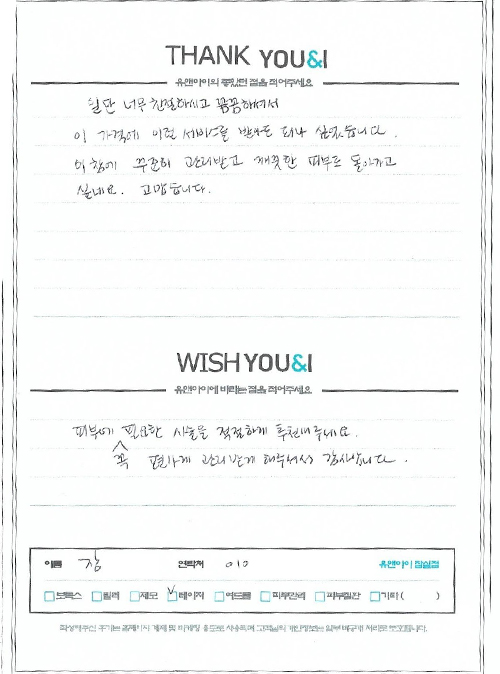 THANK YOU&I
유앤아이의 좋았던 점을 적어주세요
일단 너무 친절하시고 꼼꼼하셔서
이 가격에 이런 서비스를 받아도 되나 싶었습니다.
이참에 꾸준히 관리받고 깨끗한 피부로 돌아가고
싶네요. 고맙습니다.
WISH YOU&I
유앤아이에 바라는 점을 적어주세요
피부에 필요한 시술을 적절하게 추천해주네요.
꼭 편하게 관리받게 해주셔서 감사합니다.
이름 장 연락처 010 유앤아이 잠실점
보톡스 필러 제모 레이저 여드름 피부관리 피부질환 기타 ( )